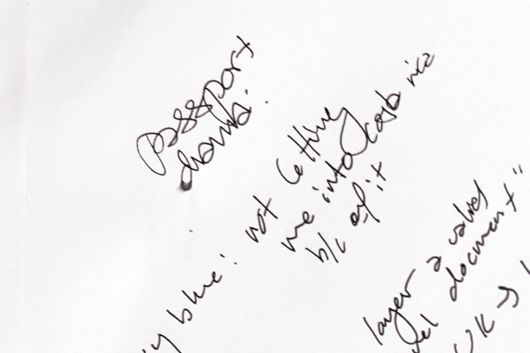 passport
drama:
y blue: not letting
me into Costa rica
b/c of it
layer a valued
document"
UK →